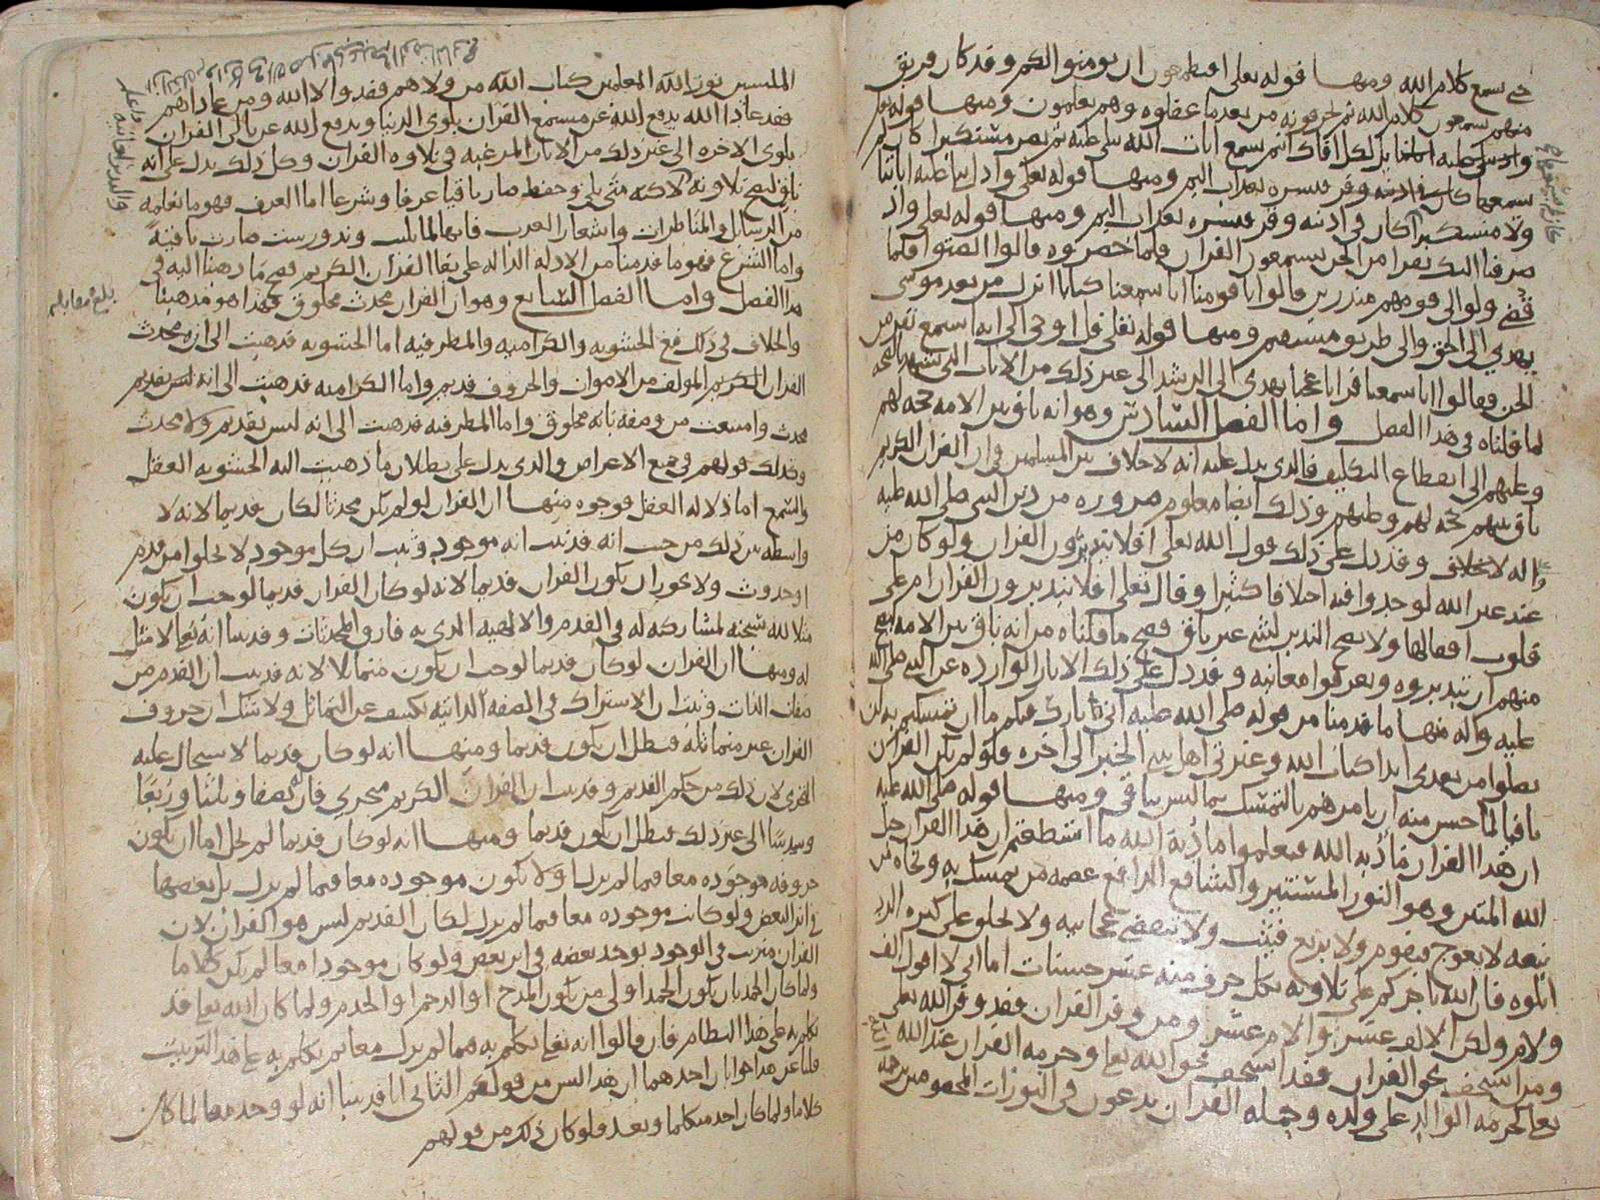 حتى يسمع كلام الله ومنها قوله تعلى افتطمعون ان يومنوا لكم وقد كان فريق
منهم يسمعون كلام الله ثم يحرفونه من بعد ما عقلوه وهم يعلمون ومنها قوله تعلى
لكل افاك اثيم يسمع ايات الله تتلى عليه ثم يصر مستكبرا كان لم
يسمعها فبشره بعذاب اليم ومنها قوله تعلى واذا تتلى عليه اياتنا
ولا مستكبرا كان في اذنيه وقر فبشره بعذاب اليم ومنها قوله تعلى واذ
صرفنا اليك نفرا من الجن يستمعون القران فلما حضروه قالوا انصتوا فلما
قضي ولوا الى قومهم منذرين قالوا يا قومنا انا سمعنا كتابا انزل من بعد موسى
يهدي الى الحق والى طريق مستقيم ومنها قوله تعلى قل اوحي الي انه استمع نفر من
الجن فقالوا انا سمعنا قرانا عجبا يهدي الى الرشد الى غير ذلك من الايات التي تشهد بصحة
لما قلناه في هذا الفصل واما الفصل السادس وهو انه باق بين الامه حجه لهم
وعليهم الى انقطاع التكليف فالذي يدل عليه انه لا خلاف بين المسلمين في ان القران الكريم
باق بينهم حجه لهم وعليهم وذلك ايضا معلوم ضروره من دين النبي صلى الله عليه
واله لا خلاف وقد دل على ذلك قول الله تعلى افلا يتدبرون القران ولو كان من
عند غير الله لوجدوا فيه اختلافا كثيرا وقال تعلى افلا يتدبرون القران ام على
قلوب اقفالها ولا يصح التدبر لشي غير باق فصح ما قلناه من انه باق بين الامه ليصح
منهم ان يتدبروه ويعرفوا معانيه وقد دل على ذلك الاثار الوارده عن النبي صلى الله
عليه واله منها ما قدمنا من قوله صلى الله عليه اني تارك فيكم ما ان تمسكتم به لن
تضلوا من بعدي ابدا كتاب الله وعترتي اهل بيتي الخبر الى اخره فلو لم يكن القران
باقيا لما حسن منه ان يامرهم بالتمسك بما ليس بباقي ومنها قوله صلى الله عليه
ان هذا القران مادبه الله فتعلموا مادبة الله ما استطعتم ان هذا القران حبل
الله المتين وهو النور المستبين والشافع النافع عصمه من تمسك به ونجاه من
تبعه لا يعوج فيقوم ولا يزيغ فيثبت ولا تنقضي عجائبه ولا يخلق على كثره الرد
اتلوه فان الله ياجركم على تلاوته بكل حرف منه عشر حسنات اما اني لا اقول الف
ولام ولكن الالف عشر واللام عشر ومن وقر القران فقد وقر الله تعلى
ومن استخف بحق القران فقد استخف بحق الله تعا وحرمه القران عند الله
تعا كحرمه الوالد على ولده وحمله القران يدعون في التورات المخصوصين برحمه
الملبسين نور الله المعلمين كتاب الله من والاهم فقد والا الله ومن عاداهم
فقد عادا الله يدفع الله عن مستمع القران بلوى الدنيا ويدفع الله عن تالي القران
بلوى الاخره الى غير ذلك من الاثار المرغبه في تلاوه القران وكل ذلك يدل على انه
باق ليصح تلاوته لانه متى تلي وحفظ صار باقيا عرفا وشرعا اما العرف فهو ما نعلمه
من الرسايل والمناظرات واشعار العرب فانها لما تليت ودرست صارت باقيةً
واما الشرع فهو ما قدمنا من الادله الداله على بقا القران الكريم فصح ما ذهبنا اليه في
هذا الفصل واما الفصل السابع وهو ان القران محدث مخلوق فهذا هو مذهبنا
والخلاف في ذلك مع الحشويه والكراميه والمطرفيه اما الحشويه فذهبت الى ان
القران الكريم المولف من الاصوات والحروف قديم واما الكراميه فذهبت الى انه ليس بقديم
محدث وامتنعت من وصفه بانه مخلوق واما المطرفيه فذهبت الى انه ليس بقديم ولا محدث
وكذلك قولهم في جميع الاعراض والذي يدل على بطلان ما ذهبت اليه الحشويه العقل
والسمع اما دلاله العقل فوجوه منها ان القران لو لم يكن محدثا لكان قديما لانه لا
واسطه بين ذلك من حيث انه قد ثبت انه موجود وثبت ان كل موجود لا يخلوا من قدم
او حدوث ولا يجوز ان يكون القران قديما لانه لو كان القران قديما لوجب ان يكون
مثلا لله سبحنه لمشاركته له في القدم والالهيه الذي به فارق المحدثات وقد بينا انه تعا لا مثل
له ومنها ان القران لو كان قديما لوجب ان يكون متماثلا لانه قد ثبت ان القدم من
صفات الذات وثبت ان الاشتراك في الصفه الذاتيه يكشف عن التماثل ولا شك ان حروف
القران غير متماثله فبطل ان يكون قديما ومنها انه لو كان قديما لاستحال عليه
التجزي لان ذلك من حكم القديم وقد ثبت ان القران الكريم متجزي فان له نصفا وثلثا وربعا
وسدسا الى غير ذلك فبطل ان يكون قديما ومنها انه لو كان قديما لم يخل اما ان يكون
حروفه موجوده معا فيما لم يزل ولا يكون موجوده معا فيما لم يزل بل بعضها
في اثر البعض ولو كانت موجوده معا فيما لم يزل لكان القديم ليس هو القران لان
القران مترتب في الوجود يوجد بعضه في اثر بعض ولو كان موجودا معا لم يكن كلاما
ولما كان الحمد بان يكون الحمد اولى من يكون المدح او الدحم او الحدم ولما كان الله تعا قد
تكلم به على هذا النظام فان قالوا انه تعا تكلم به فيما لم يزل معا ثم تكلم به على هذا الترتيب
قلنا عن هذا جوابان احدهما ان هذا ليس من قولكم الثاني انا قد بينا انه لو وجد معا لما كان
كلاما ولما كان احد متكلما وبعد فلو كان ذلك من قولهم
بلغ مقابله